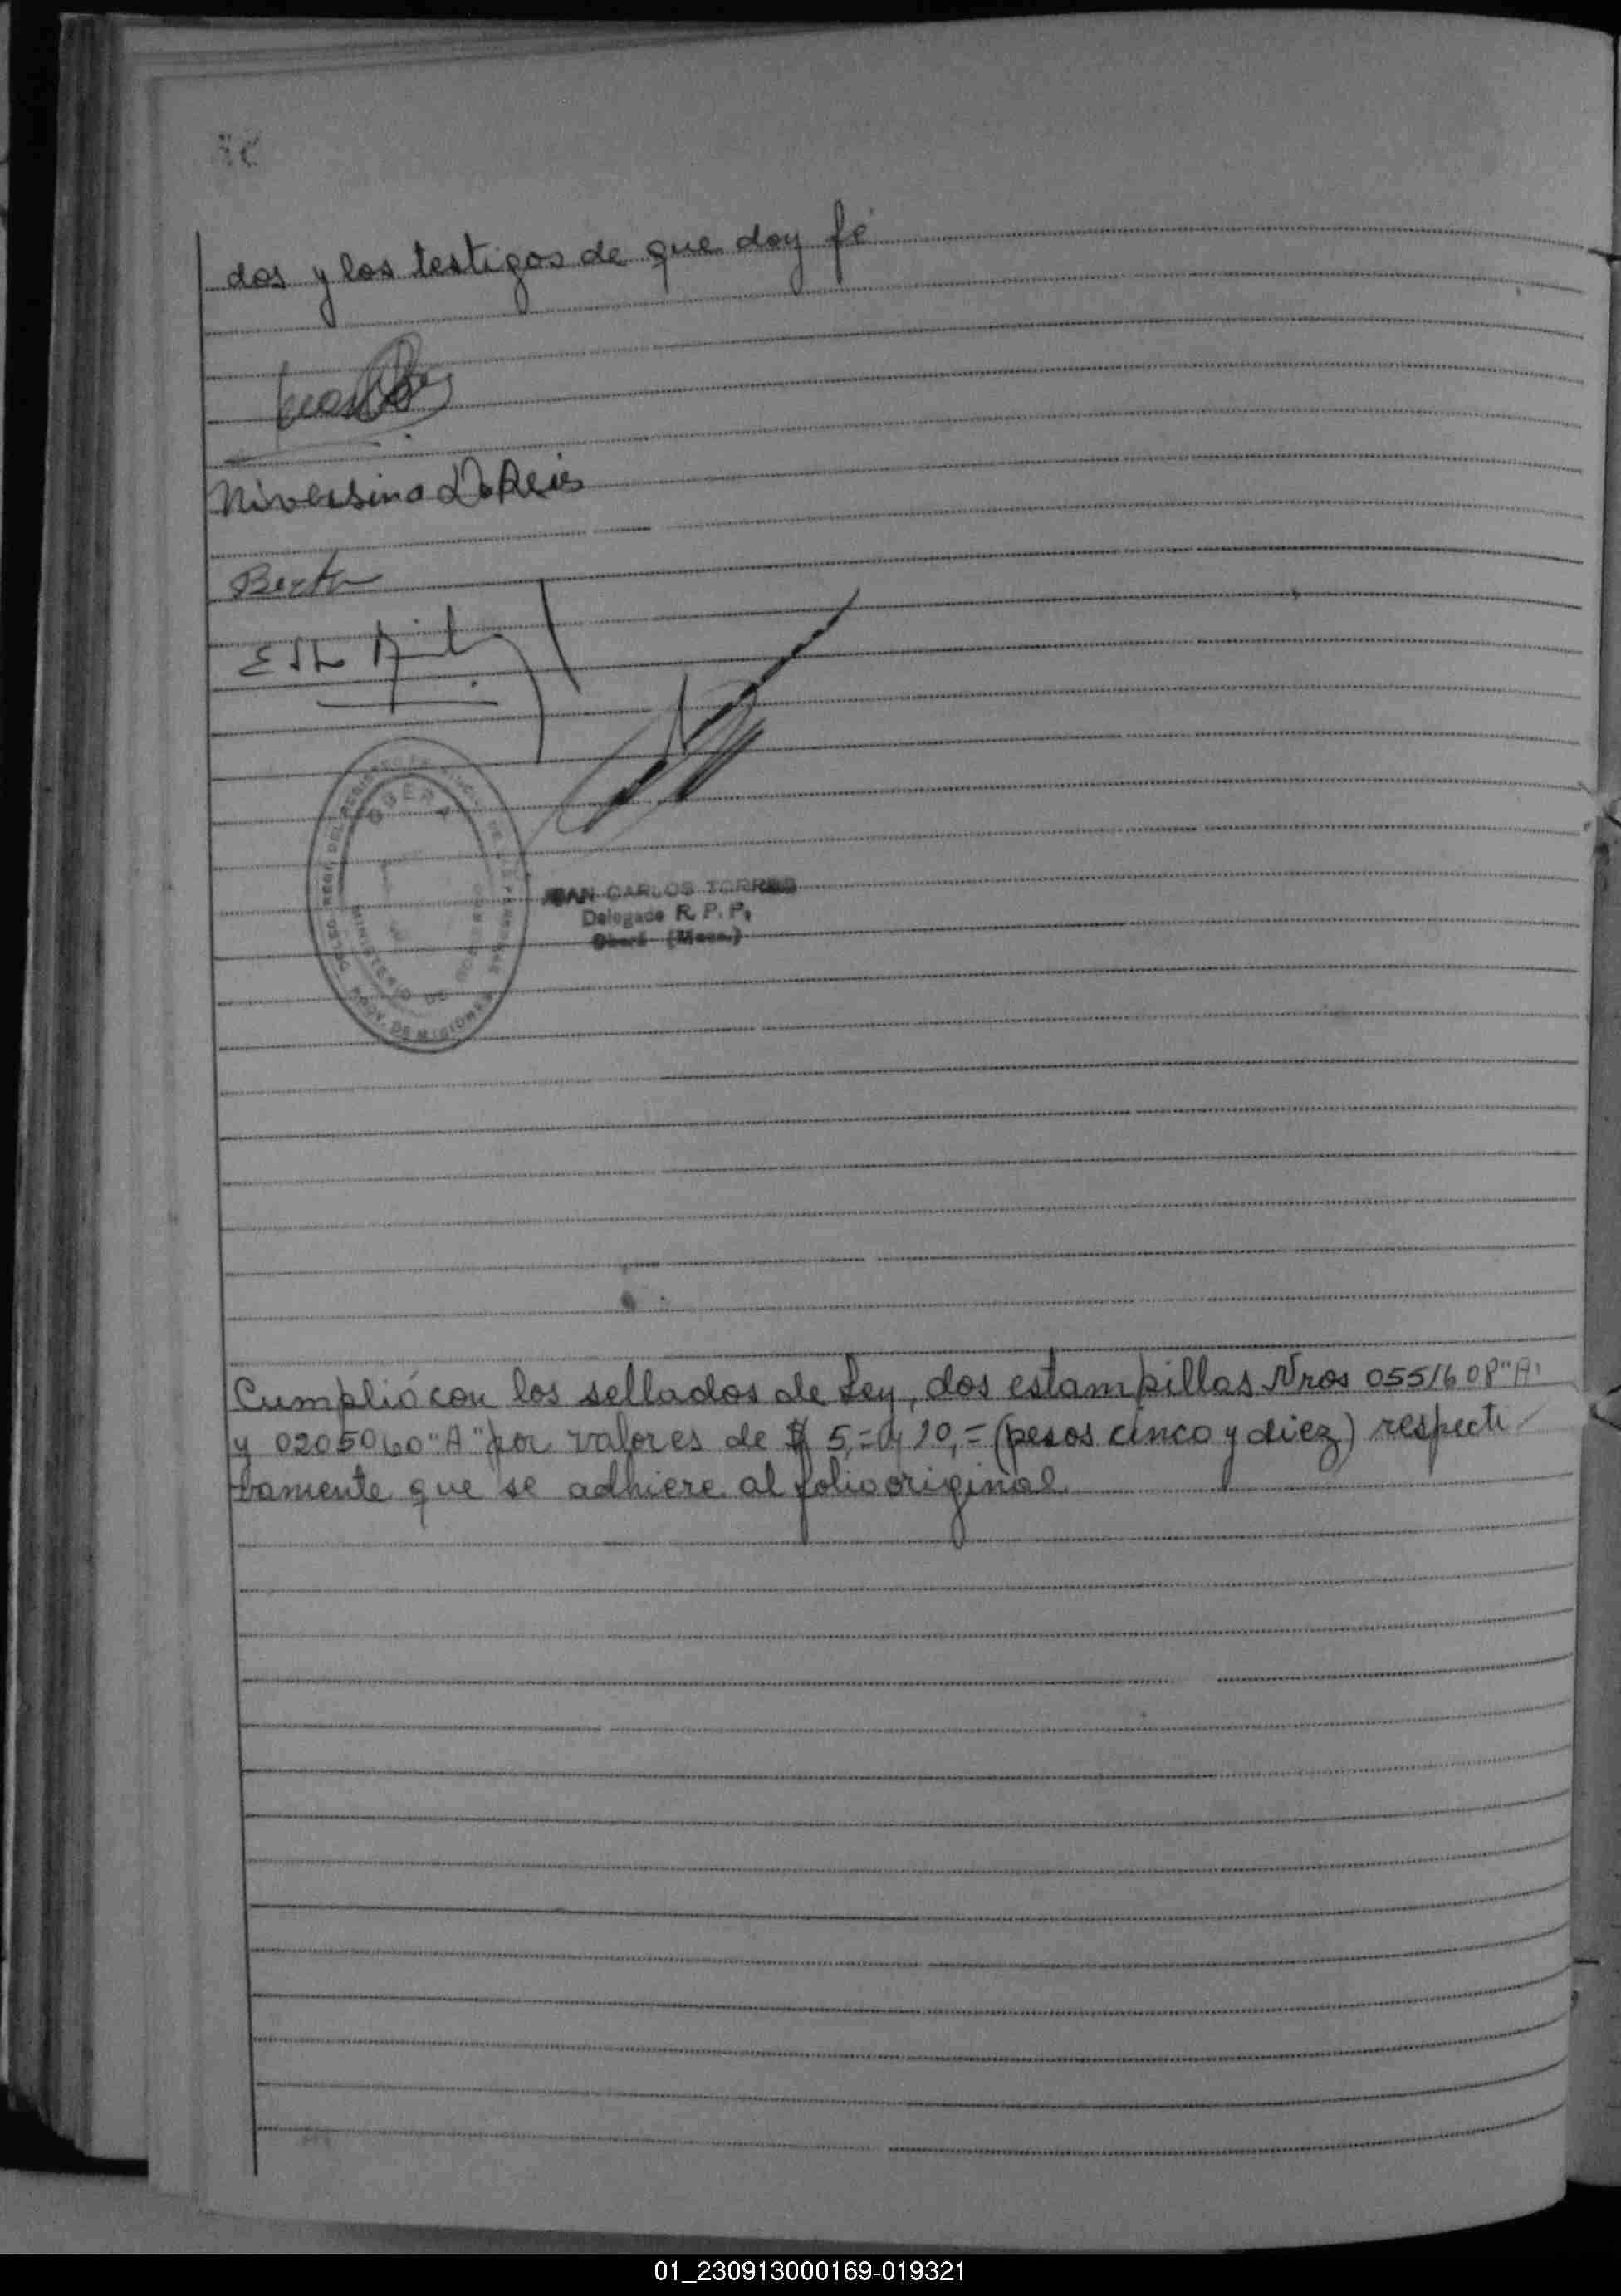 dos y los testigos de que doy fé
Niversina D. Reis
Berta
OBERA
MINISTERIO DE GOBIERNO
PROV. DE MISIONES
JUAN CARLOS TORRES
Delegado R. P. P.
Oberá (Mnes.)
Cumplió con los sellados de Ley, dos estampillas Nros 0551608 "A"
y 0205060 "A" por valores de $ 5,= y 10,= (pesos cinco y diez) respecti
vamente que se adhiere al folio original
01_230913000169-019321